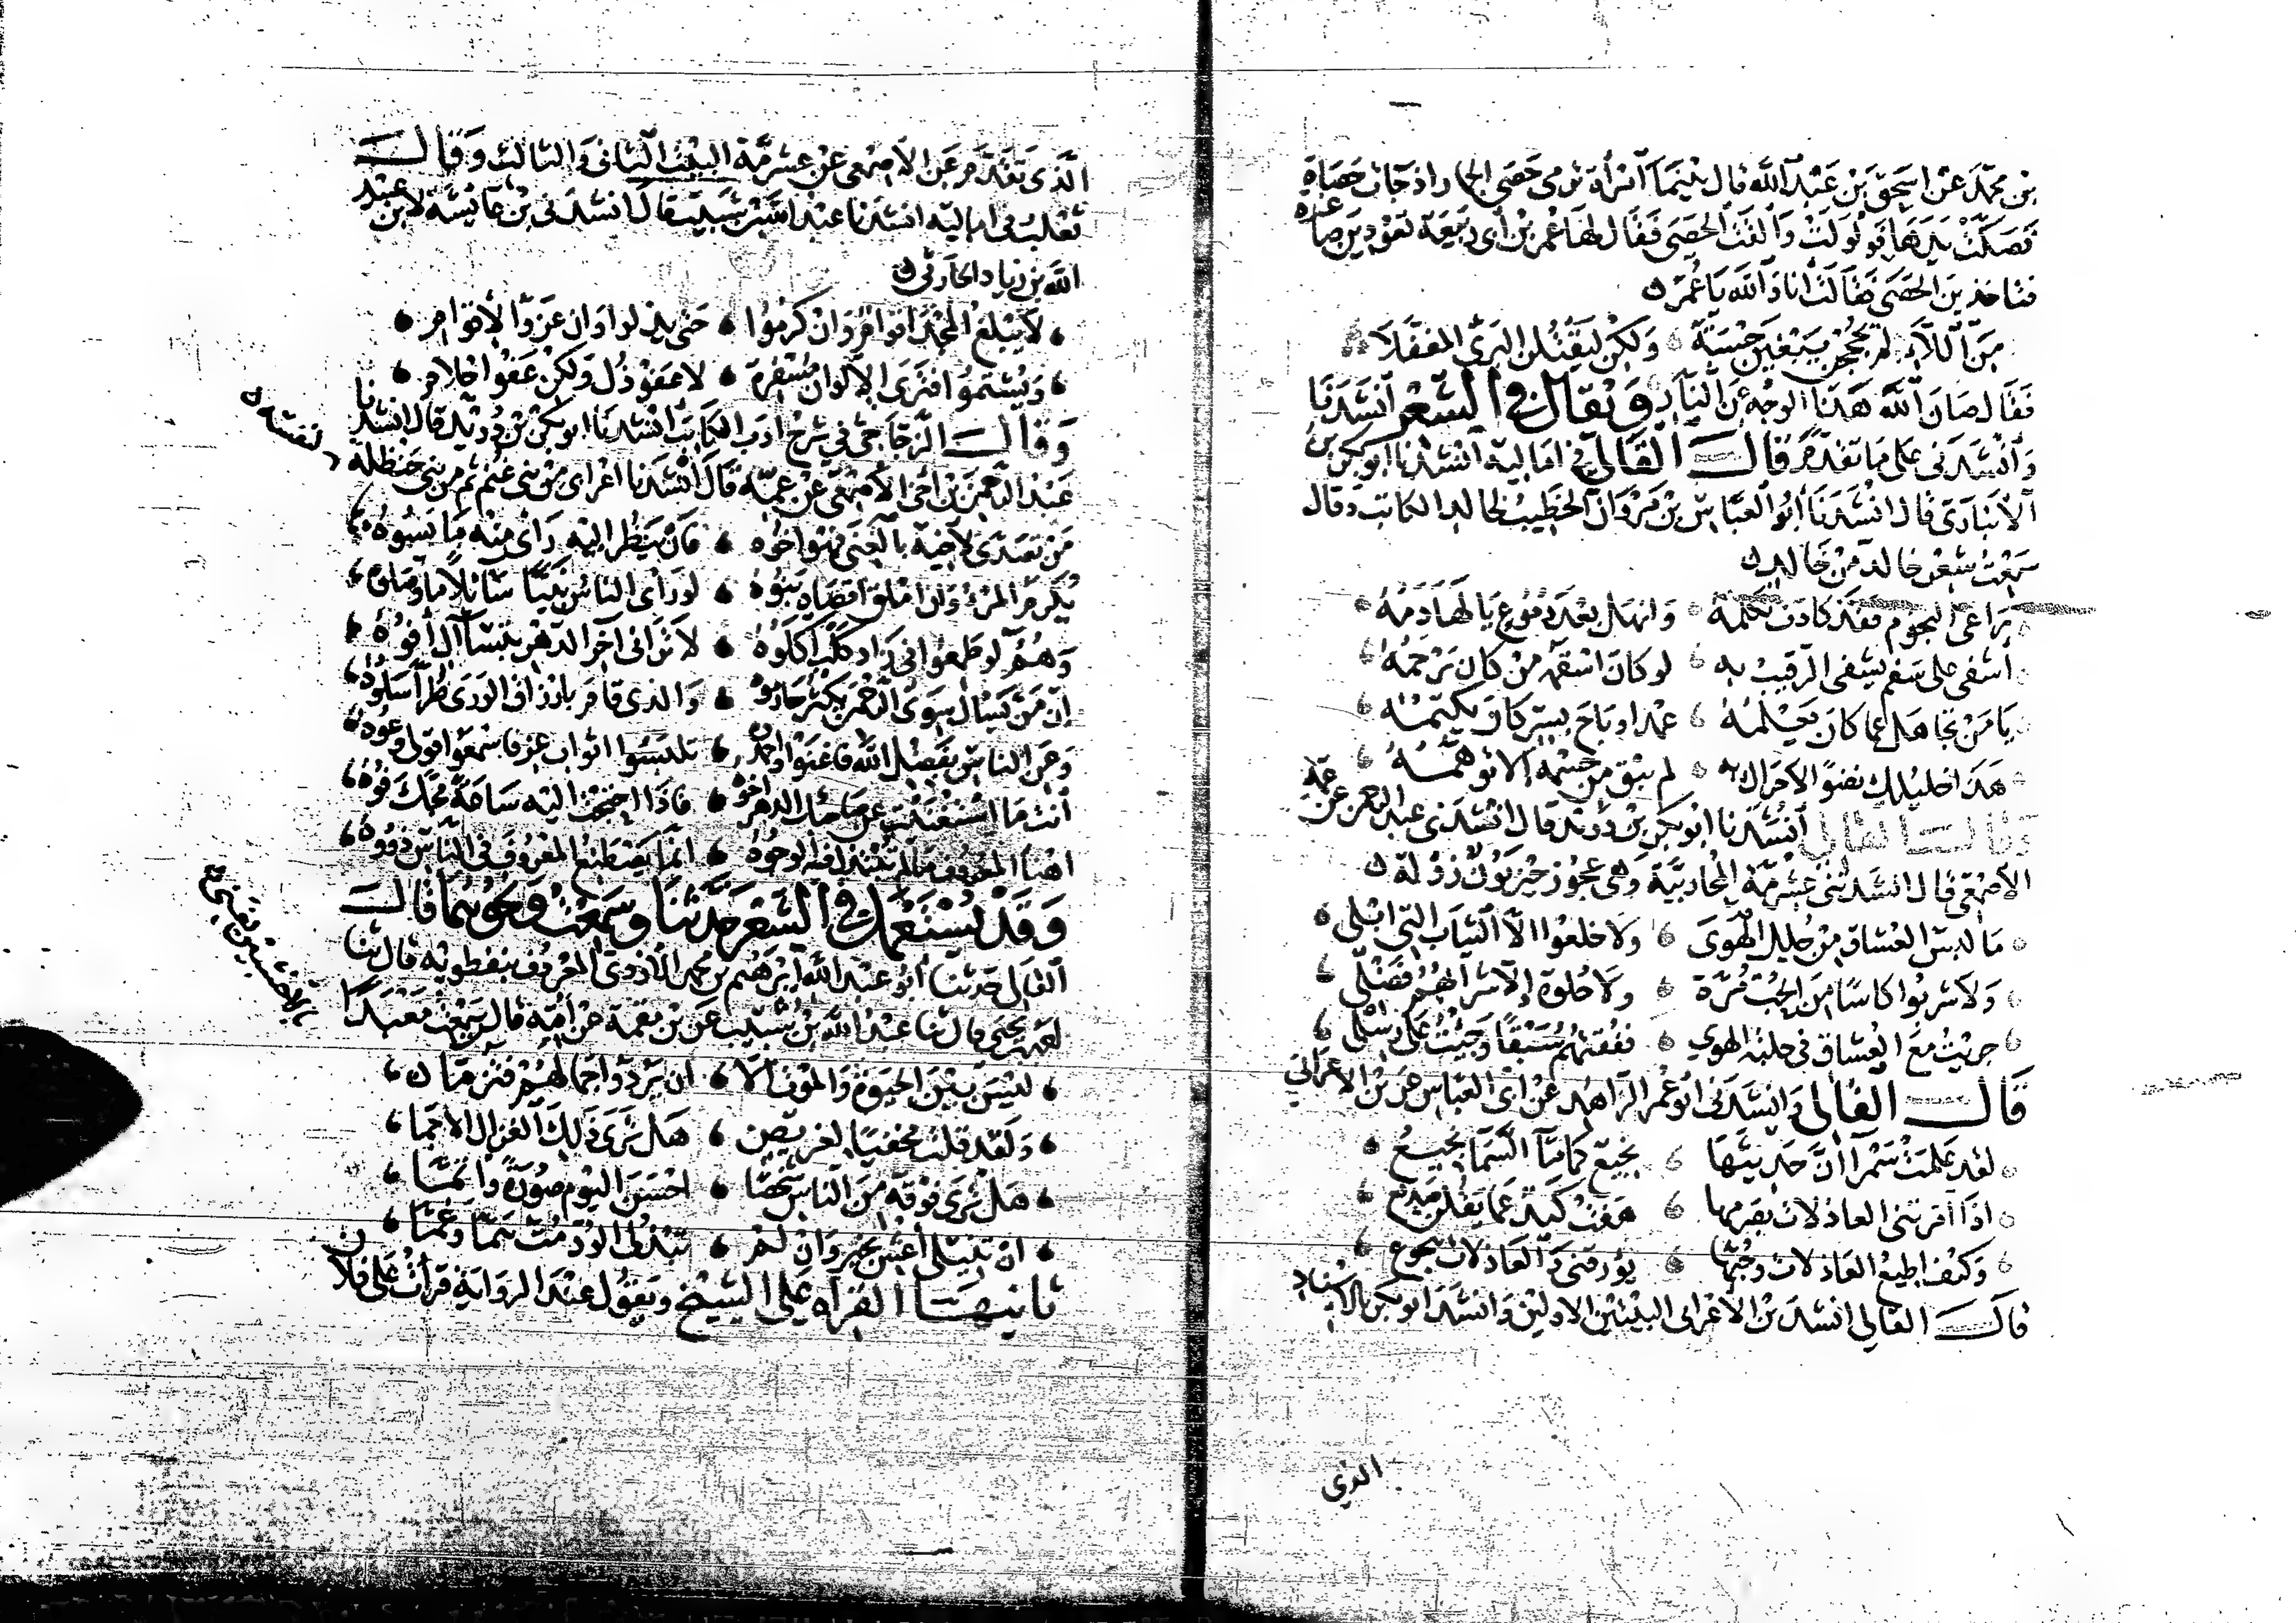 بن محمد عن اسحق بن عبد الله قال بينما امرأة ترمي حصى الجمار اذ جات حصاة
فصكت يدها فولولت والقت الحصى فقال لها عمر بن أبي ربيعة تعودين صاغرة
فتاخذين الحصى فقالت انا والله يا عمر
من اللاء لم يحججن يبغين حسبة ولكن ليقتلن البرئ المغفلا
فقال صان الله هذا الوجه عن النار ويقال في الشعر انشدنا
وأنشدني على ما تقدم قال القالي في اماليه انشدنا ابو بكر بن
الانباري قال انشدنا أبو العباس بن مروان الخطيب لخالد الكاتب وقال
سمعت شعر خالد من خالد
راعى النجوم فقد كادت تكلمه وانهل بعد دموع يا لها دمه
أشفى على سقم يشفى الرقيب به لو كان اسقمه من كان يرحمه
يا من تجاهل عما كان يعلمه عمدا وباح بسر كان يكتمه
هذا خليلك نضوا لا حراك به لم يبق من جسمه الا توهمه
وقال القالي أنشدنا ابو بكر بن دريد قال انشدني عبد الرحمن عن عمه
الأصمعي قال انشدتني عشرمة المحاربية وهي عجوز حيزبون زولة
ما لبس العشاق من حلل الهوى ولا خلعوا الا الثياب التي ابلي
ولا شربوا كاسا من الحب مرة ولا حلوة الا شرابهم فضلي
جريت مع العشاق في حلبة الهوى ففقتهم سبقا وجئت على رسلي
قال القالي وانشدني ابو عمر الزاهد عن ابي العباس عن بن الأعرابي
لقد علمت سمرا أن حديثها نجيع كما ماء السما نجيع
اذا امرتني العاذلات بصرمها هفت كبد عما يقلن صديع
وكيف اطيع العاذلات وحبها يؤرقني والعاذلات هجوع
قال القالي انشد بن الأعرابي البيتين الاولين وانشد ابو بكر بالاسناد
الذي
الذي تقدم عن الأصمعي عن عشرمة البيت الثاني والثالث وقال
ثعلب في اماليه انشدنا عبد الله بن شبيب قال انشدني بن عائشة لابن عبد
الله بن زياد الحارثي
لا يبلغ المجد اقوام وان كرموا حتى يذلوا وان عزوا لاقوام
ويشتموا فترى الالوان مسفرة لا عفو ذل ولكن عفو احلام
وقال الزجاجي في شرح ادب الكاتب انشدنا ابو بكر بن دريد قال انشدنا
عبد الرحمن بن اخي الأصمعي عن عمه قال انشدنا اعرابي من بني غنم ثم من بني حنظلة
لنفسه
من تصدى لاخيه بالغنى فهو اخوه فان ينظر اليه رأى منه ما يسوه
يكرم المرء وان املق اقصاه بنوه لو رأى الناس نبيا سائلا ما وصلوه
وهم لو طمعوا في زاد كلب اكلوه لا تراني آخر الدهر بتسآل أفوه
ان من يسال سوى الرحمن يكثر حارموه والذي قام بارزاق الورى طرا سلوه
وعن الناس بفضل الله فاغنوا واحمدوه تلبسوا اثواب عز فاسمعوا قولي وعوه
أنت ما استغنيت عن صاحبك الدهر اخوه فاذا احتجت اليه ساعة مجك فوه
اهنا المعروف ما لم تبتذل فيه الوجوه انما يصطنع المعروف في الناس ذووه
وقد يستعمل في الشعر حدثنا وسمعت ونحوهما قال
القالي حدثنا أبو عبد الله ابرهيم بن محمد الازدي المعروف بنفطويه قال ثنا
احمد بن يحيى قال ثنا عبد الله بن شبيب عن بن مقمة عن أمه قال سمعت معبدا
ليس بين الحيوة والموت الا ان يردوا جمالهم فتزما
ولقد قلت مخفيا لغريض هل ترى ذلك الغزال الاجما
هل ترى فوقه من الناس شخصا احسن اليوم صورة واتما
ان تنيلي أعش بخير وان لم تبذلي الود مت هما وغما
ثانيها القراه على الشيخ ويقول عند الرواية قرأت على فلان